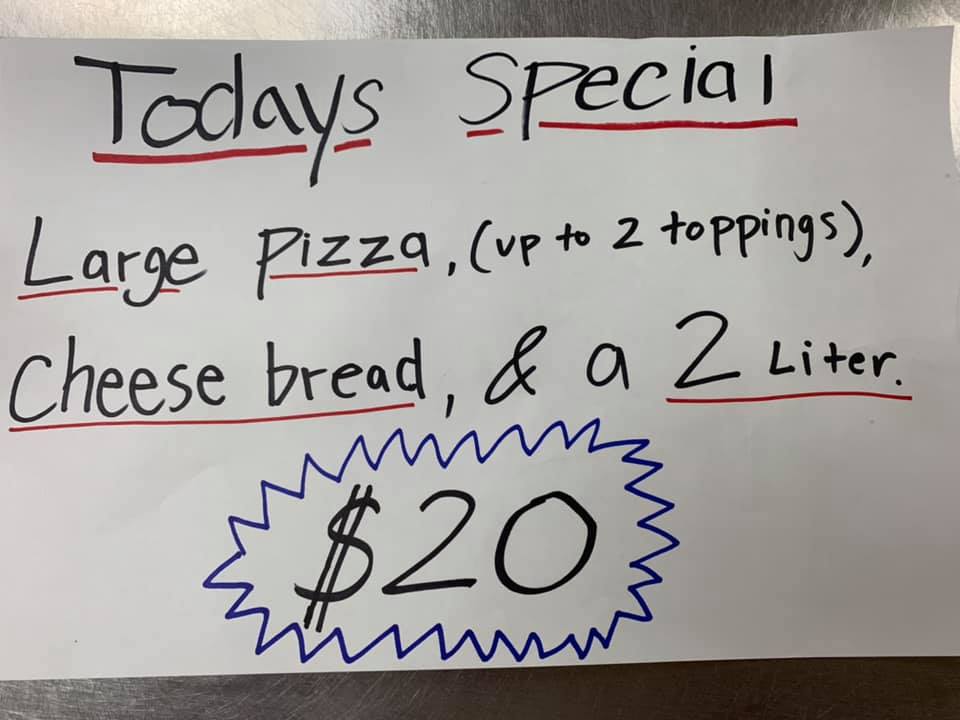 Todays Special
Large pizza, (up to 2 toppings),
Cheese bread, & a 2 Liter.
$20